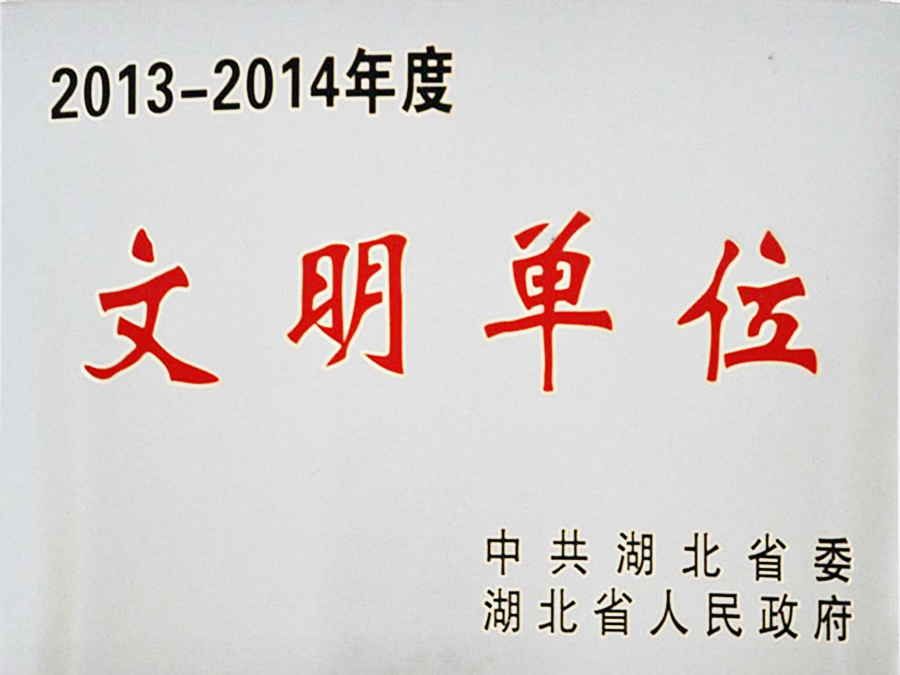 2013-2014年度
文明单位
中共湖北省委
湖北省人民政府